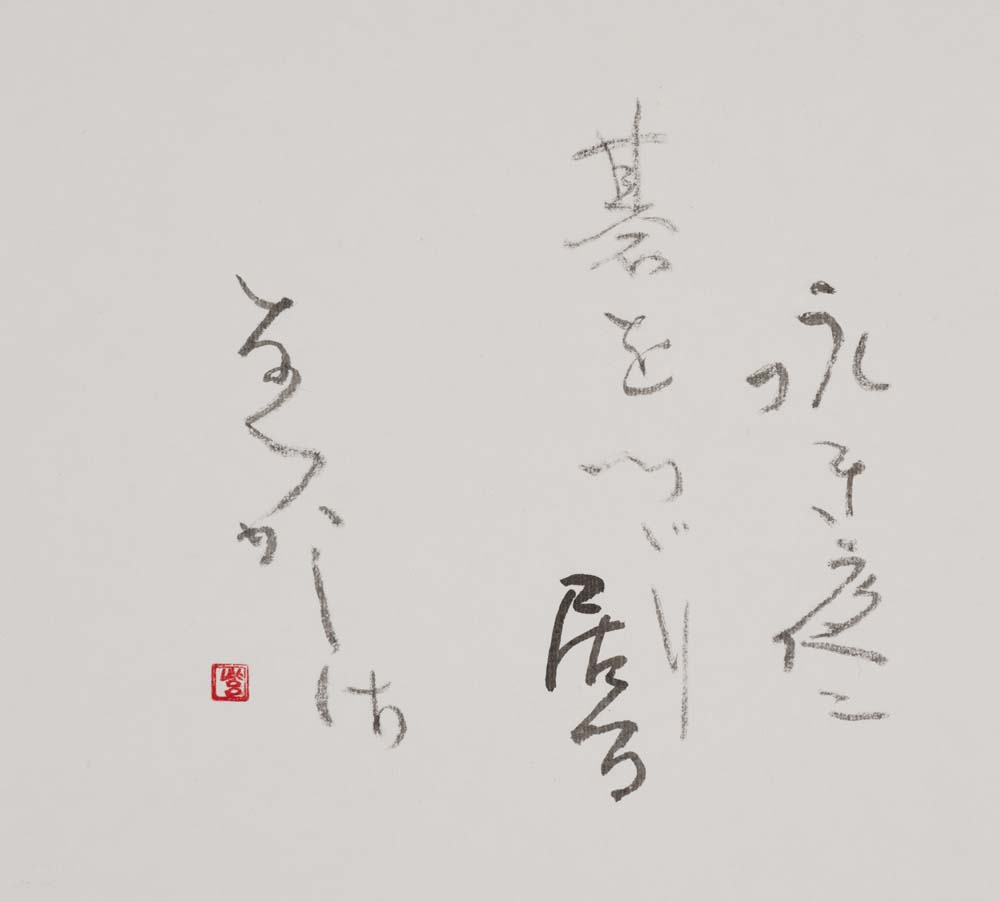 永き夜ニ
碁をつゞり居る
なつかしさ